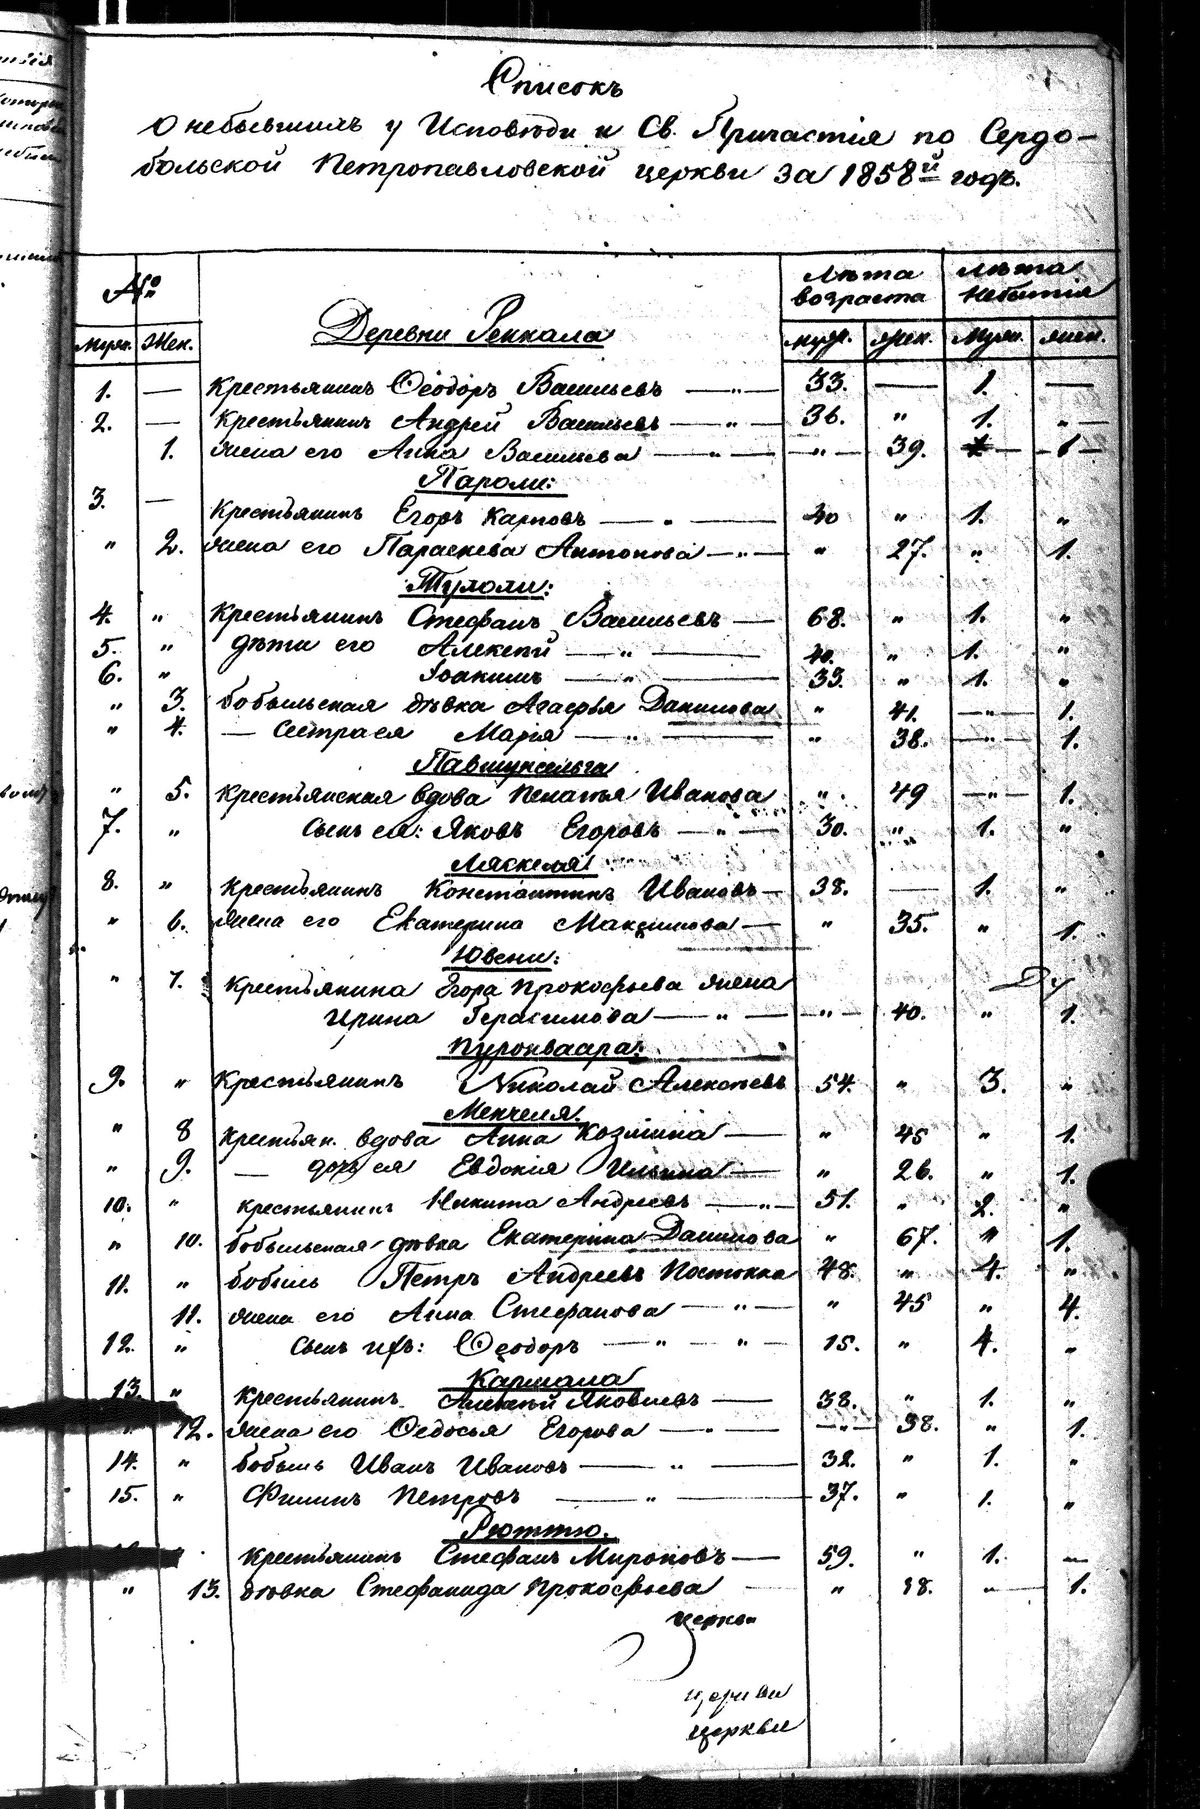 Списокъ
О небывшихъ у Исповѣди и Св. Причастія по Сердо-
больской Петропавловской церкви за 1858й годъ.
№ Деревни Реккала Лѣта возраста Лѣта небытія
Муж. Жен. муж. жен. Муж. жен.
1. — Крестьянинъ Ѳеодоръ Васильевъ — " — 33. — 1. —
2. — Крестьянинъ Андрей Васильевъ — " — 36. " 1. " —
1. жена его Анна Васильева — " — — " — 39. — 1 —
Пароли:
3. — Крестьянинъ Егоръ Карповъ — " — 40 " 1. "
" 2. жена его Параскева Антонова — " — " 27. " 1.
Тулоли:
4. " Крестьянинъ Стефанъ Васильевъ — 68. " 1. "
5. " дѣти его Алексѣй — " — 40. " 1. "
6. " Іоакимъ — " — 33. " 1. "
" 3. бобыльская дѣвка Агафья Данилова " 41. — " — 1.
" 4. — Сестра ея Марія — " — " 38. — " — 1.
" 5. Крестьянская вдова Игнатья Иванова " 49 — " — 1.
7. " Сынъ ея: Яковъ Егоровъ — " — 30. " 1. "
Ляскеля
8. " Крестьянинъ Константинъ Ивановъ — 38. — 1. "
" 6. жена его Екатерина Максимова — " 35. " 1.
Ювени:
" 7. Крестьянина Егора Прокофьева жена
Ирина Герасимова — " — — " — 40. " 1.
Пуронваара:
9. " Крестьянинъ Николай Алексѣевъ 54. " 3. "
Мекчеля.
" 8 Крестьян. вдова Анна Козмина — " 45 " 1.
" 9. — дочь ея Евдокія Ильина — " 26. " 1.
10. " крестьянинъ Никита Андреевъ — " — 51. " 2. "
" 10. бобыльская дѣвка Екатерина Данилова " 67. " 1.
11. " бобыль Петръ Андреевъ 48. " 4. "
11. жена его Анна Стефанова — " — " 45 " 4.
12. " Сынъ ихъ: Ѳеодоръ — " — " — 15. " 4. "
13. " Крестьянинъ Алексѣй Яковлевъ — 38. " 1. "
12. жена его Ѳедосья Егорова — " — — " — 38. " 1.
14. " бобыль Иванъ Ивановъ — " — 32. " 1. "
15. " Филипъ Петровъ — " — 37. " 1. "
Рюттю.
Крестьянинъ Стефанъ Мироновъ — 59. " 1. —
" 13. дѣвка Стефанида Прокофьева — " " — 1.
церкви
церкви
церкви